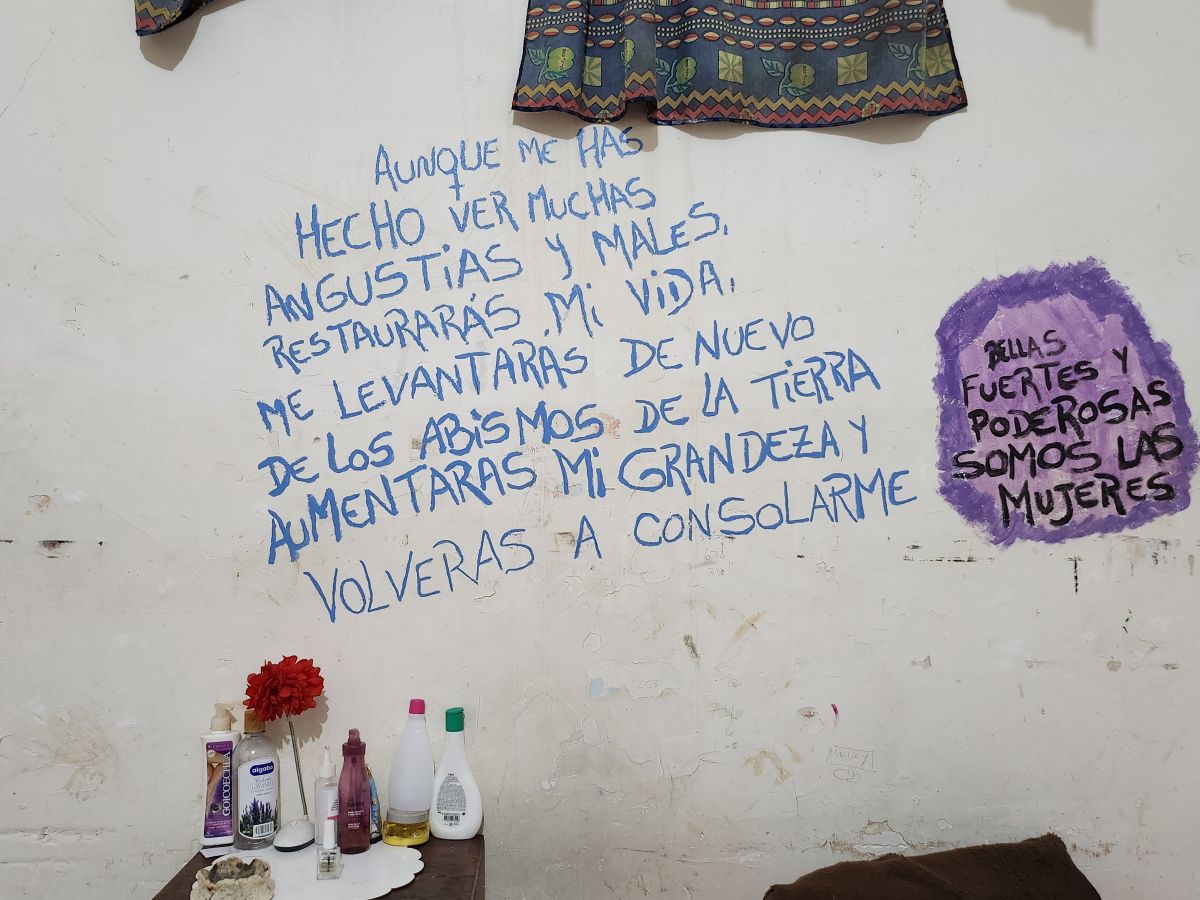 AUNQUE ME HAS
HECHO VER MUCHAS
ANGUSTIAS Y MALES,
RESTAURARÁS MI VIDA,
ME LEVANTARAS DE NUEVO
DE LOS ABISMOS DE LA TIERRA
AUMENTARAS MI GRANDEZA Y
VOLVERAS A CONSOLARME
BELLAS
FUERTES Y
PODEROSAS
SOMOS LAS
MUJERES
GOICOECHEA
algabo
LAVANDA